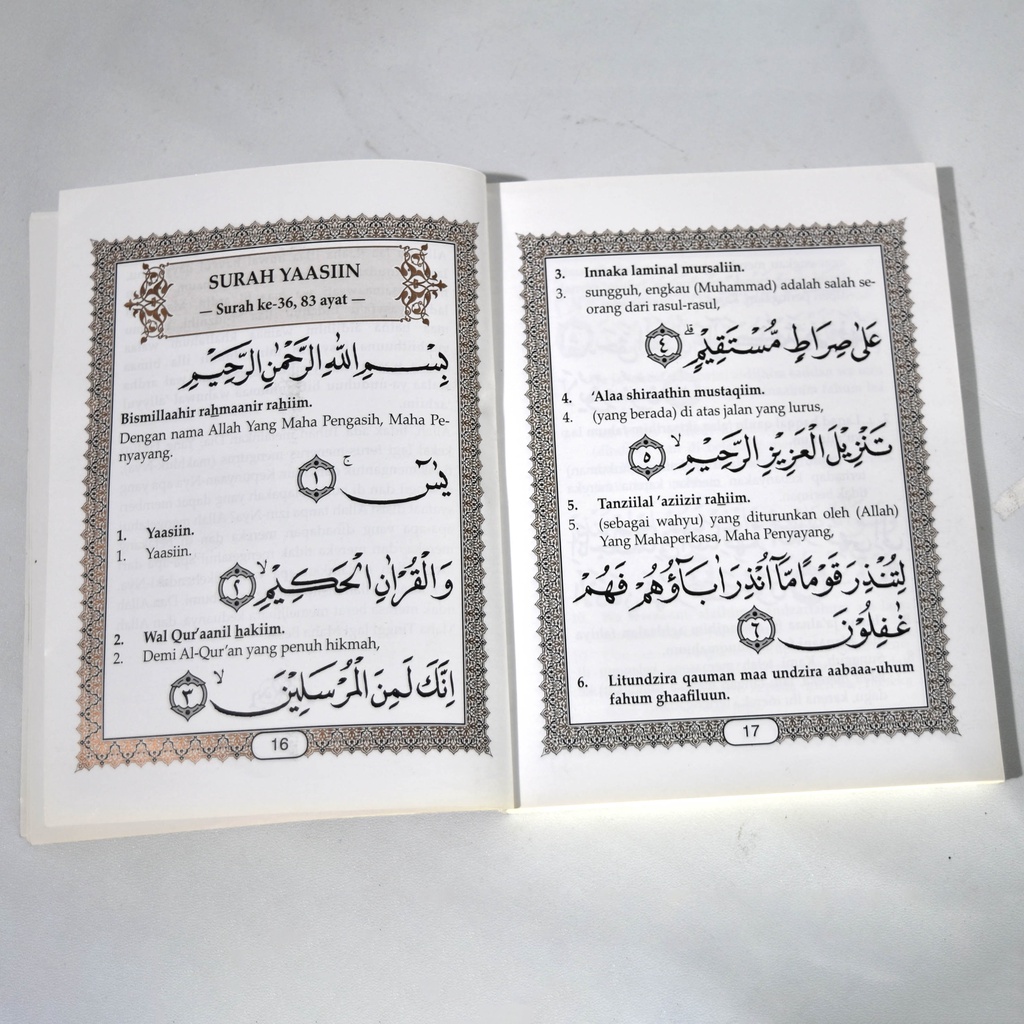 SURAH YAASIIN
— Surah ke-36, 83 ayat —
بِسْمِ اللّٰهِ الرَّحْمٰنِ الرَّحِيْمِ
Bismillaahir rahmaanir rahiim.
Dengan nama Allah Yang Maha Pengasih, Maha Pe-
nyayang.
يٰسۤ ۚ ١
1. Yaasiin.
1. Yaasiin.
وَالْقُرْاٰنِ الْحَكِيْمِۙ ٢
2. Wal Qur'aanil hakiim.
2. Demi Al-Qur'an yang penuh hikmah,
اِنَّكَ لَمِنَ الْمُرْسَلِيْنَۙ ٣
16
3. Innaka laminal mursaliin.
3. sungguh, engkau (Muhammad) adalah salah se-
orang dari rasul-rasul,
عَلٰى صِرَاطٍ مُّسْتَقِيْمٍۗ ٤
4. 'Alaa shiraathin mustaqiim.
4. (yang berada) di atas jalan yang lurus,
تَنْزِيْلَ الْعَزِيْزِ الرَّحِيْمِۙ ٥
5. Tanziilal 'aziizir rahiim.
5. (sebagai wahyu) yang diturunkan oleh (Allah)
Yang Mahaperkasa, Maha Penyayang,
لِتُنْذِرَ قَوْمًا مَّآ اُنْذِرَ اٰبَاۤؤُهُمْ فَهُمْ
غٰفِلُوْنَ ٦
6. Litundzira qauman maa undzira aabaaa-uhum
fahum ghaafiluun.
17